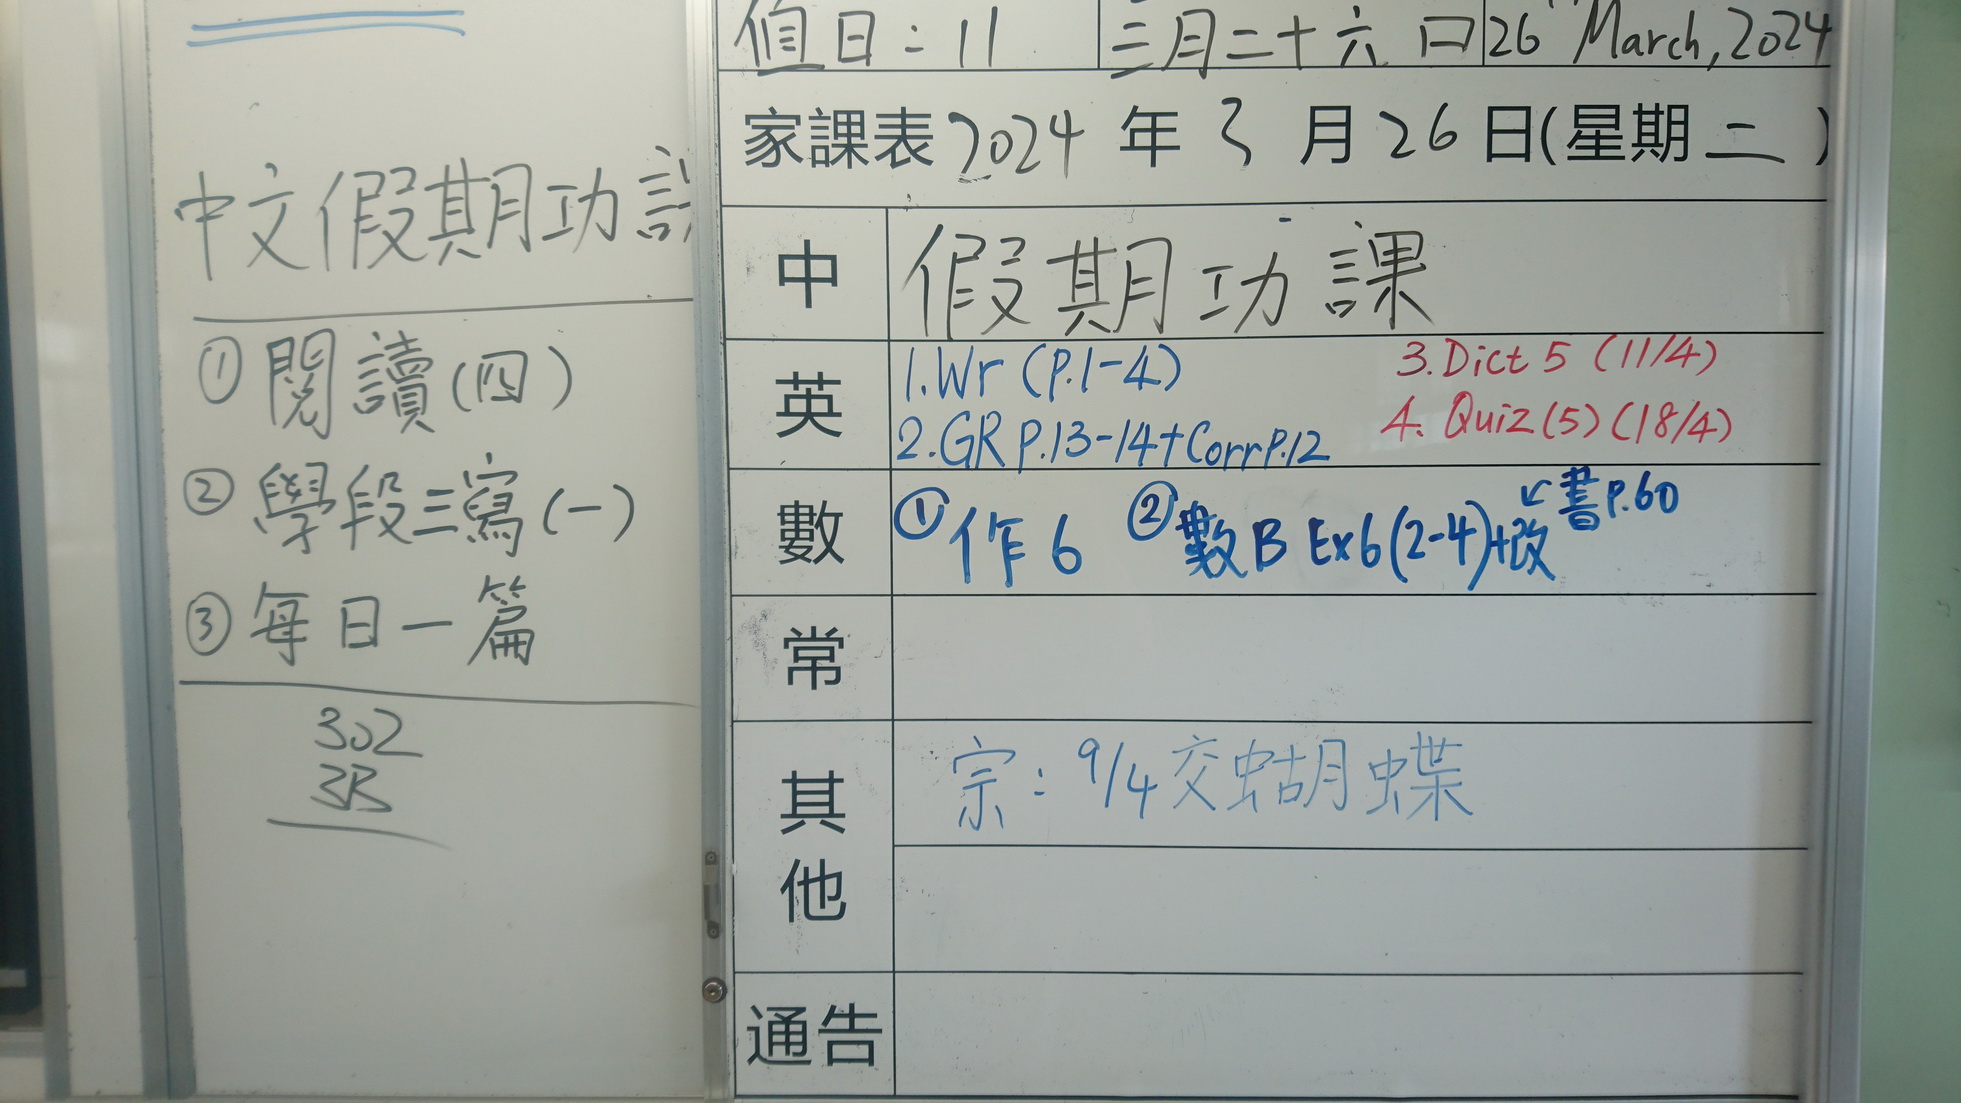 中文假期功課
① 閱讀(四)
② 學段三寫(一)
③ 每日一篇
302
3B
值日:11 三月二十六日 26 March, 2024
家課表 2024 年 3 月 26 日(星期 二 )
中 假期功課
英 1.Wr (P.1-4) 3.Dict 5 (11/4)
2.GR P.13-14+Corr P.12 4. Quiz (5) (18/4)
數 ① 作 6 ② 數B Ex6(2-4)+改 ↙書P.60
常
其他 宗:9/4交蝴蝶
通告